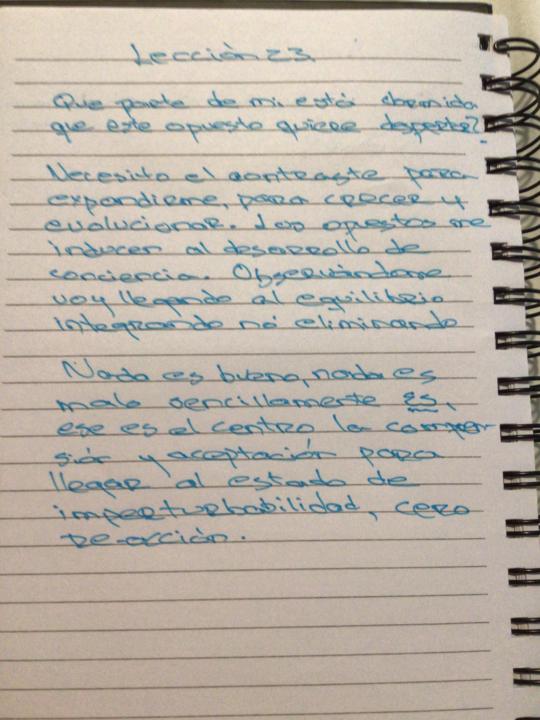 Lección 23
Que parte de mi está dormida
que este opuesto quiere despertar?
Necesito el contraste para
expandirme, para crecer y
evolucionar. Los opuestos me
inducen al desarrollo de
conciencia. Observándome
voy llegando al equilibrio
integrando no eliminando
Nada es bueno, nada es
malo sencillamente es,
ese es el centro la compren-
sión y aceptación para
llegar al estado de
imperturbabilidad, cero
re-acción.